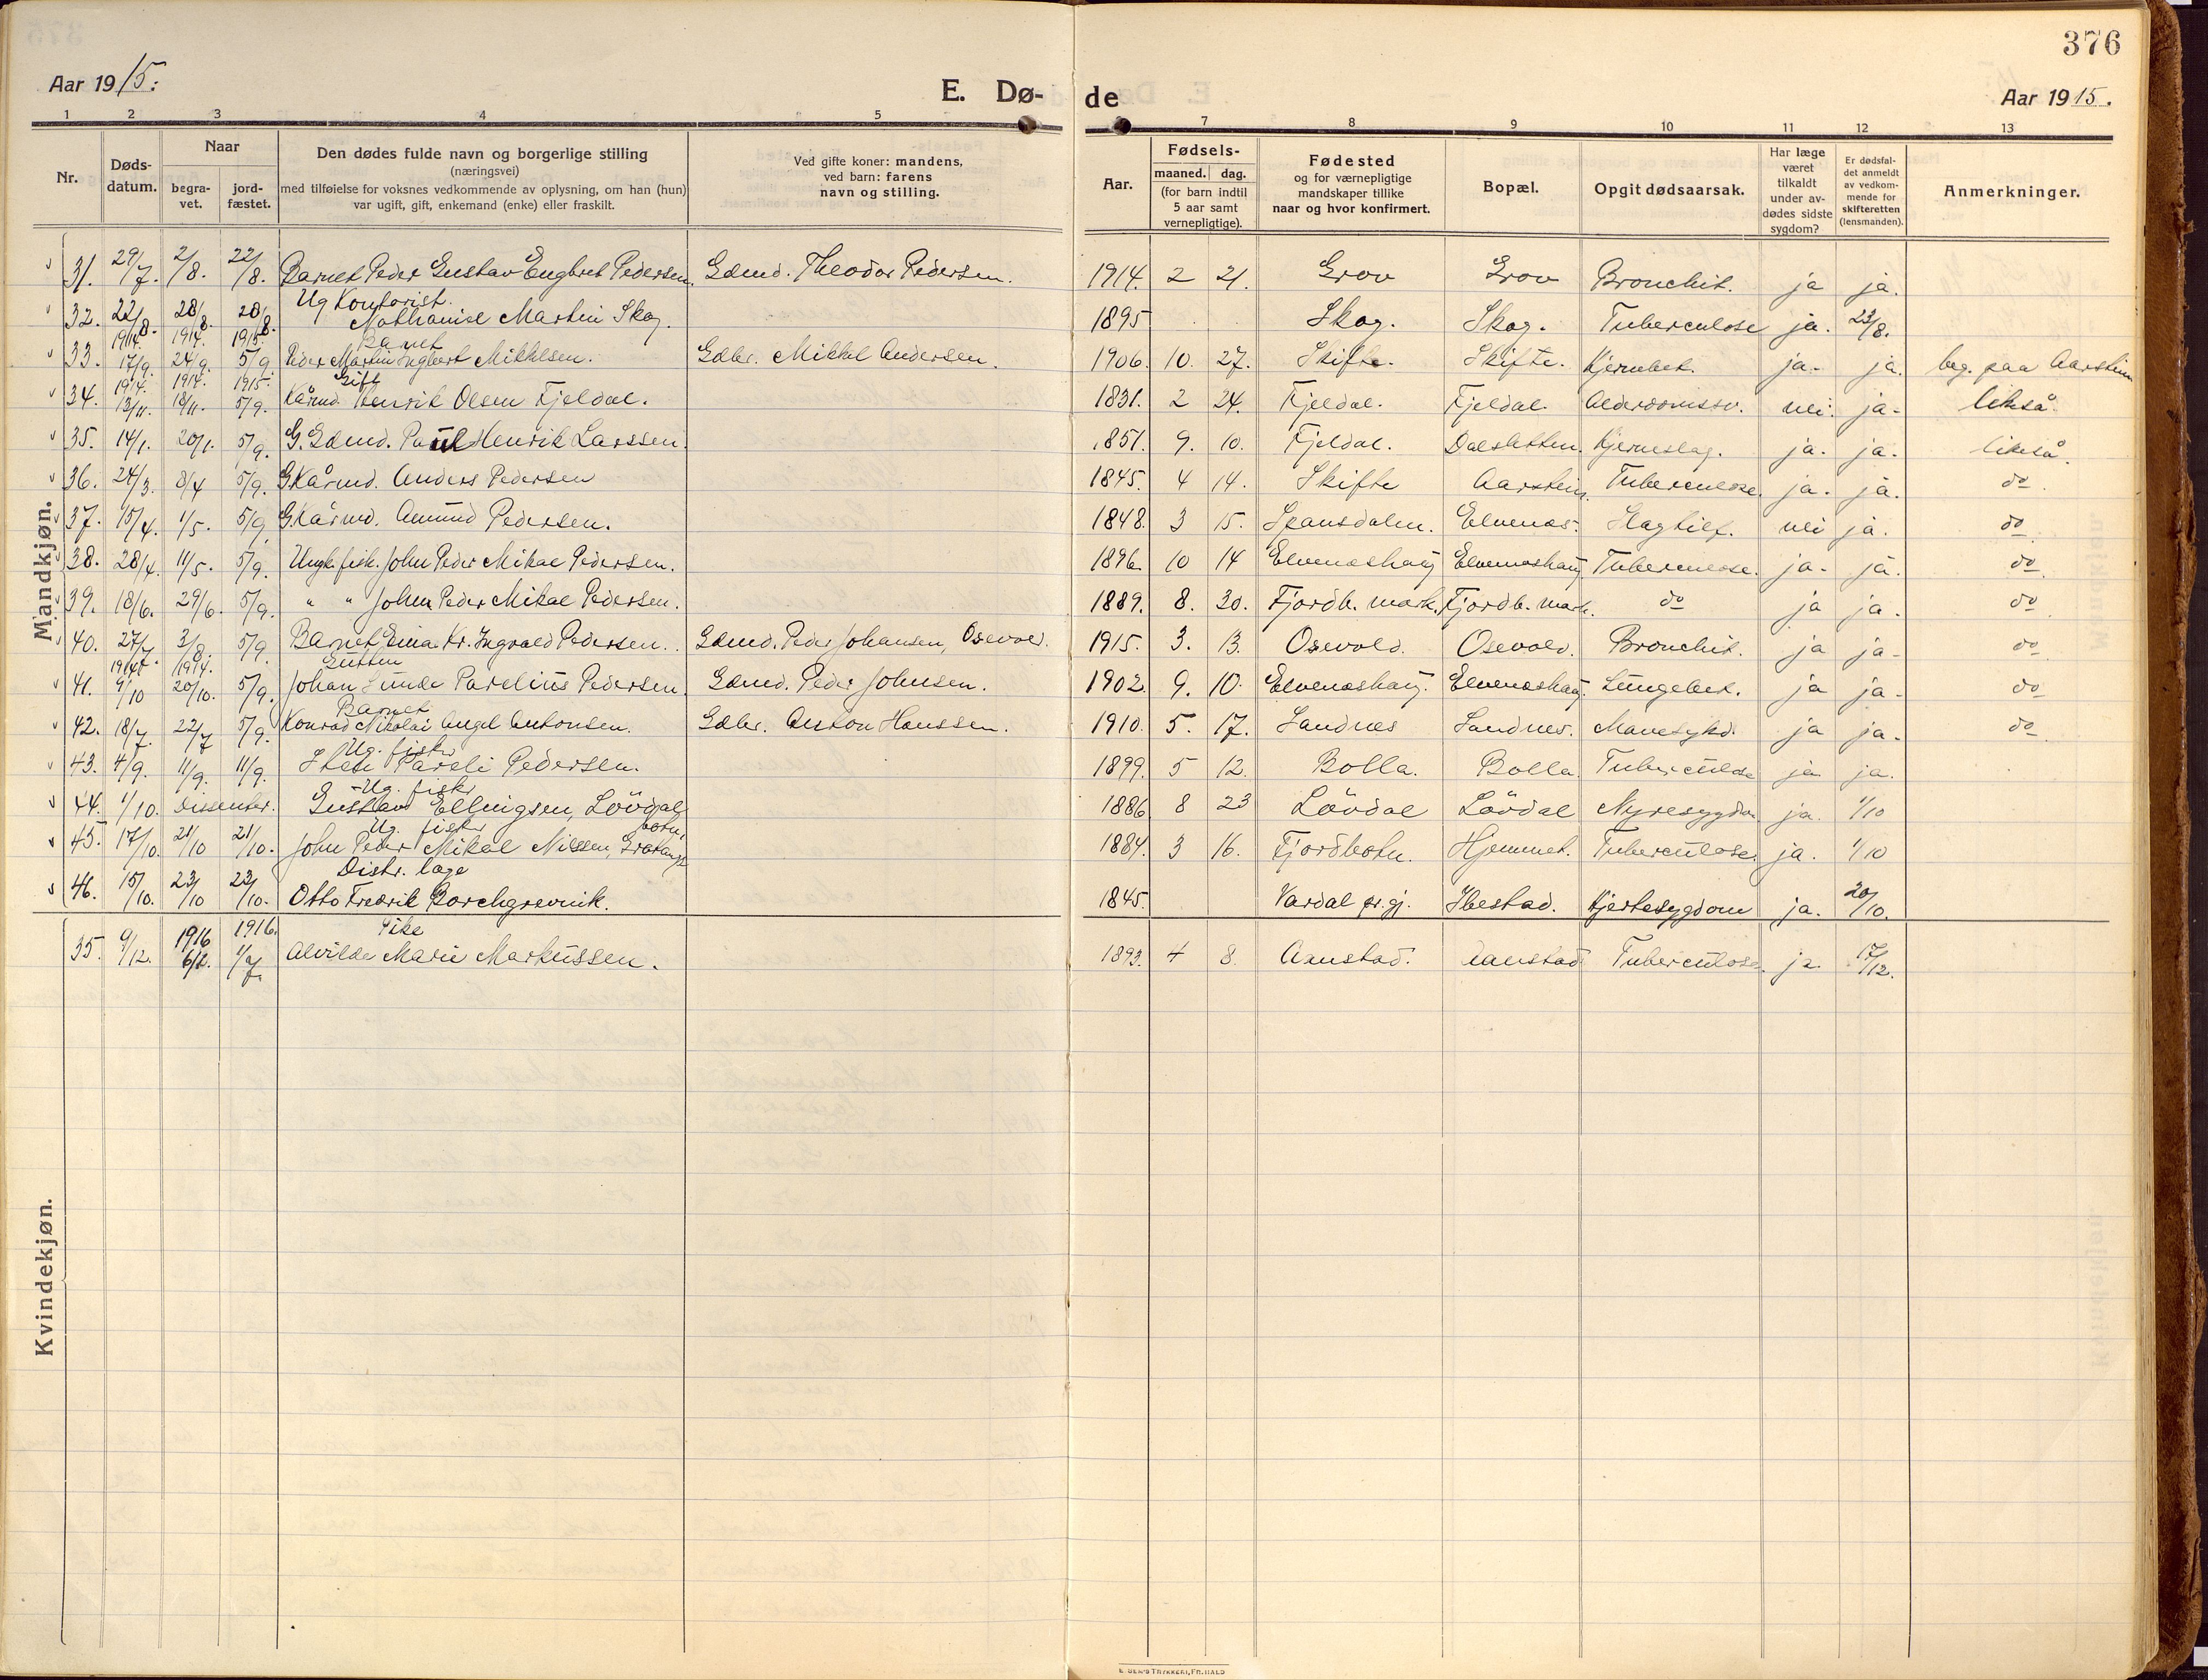 376
Aar 1915.
E. Dø-
de
Aar 1915.
1 2 3 4 5 7 8 9 10 11 12 13
Nr.
Døds-
datum.
Naar
begra-
vet.
jord-
fæstet.
Den dødes fulde navn og borgerlige stilling
(næringsvei)
med tilføielse for voksnes vedkommende av oplysning, om han (hun)
var ugift, gift, enkemand (enke) eller fraskilt.
Ved gifte koner: mandens,
ved barn: farens
navn og stilling.
Aar.
Fødsels-
maaned. dag.
(for barn indtil
5 aar samt
vernepligtige).
Fødested
og for værnepligtige
mandskaper tillike
naar og hvor konfirmert.
Bopæl.
Opgit dødsaarsak.
Har læge
været
tilkaldt
under av-
dødes sidste
sygdom?
Er dødsfal-
det anmeldt
av vedkom-
mende for
skifteretten
(lensmanden).
Anmerkninger.
Mandkjøn.
31. 29/7. 2/8. 22/8. Barnet Peder Gustav Engbret Pedersen. Gdmd. Theodor Pedersen. 1914. 2 21. Grov Grov Bronchit. ja ja.
Ug Kontorist.
32. 22/8. 28/8. 28/8. Nathanael Martin Skog. 1895 Skog. Skog. Tuberculose ja. 23/8.
1914. 1914. 1915. Barnet
33. 17/9. 24/9. 5/9. Peder Martin Ingbert Mikkelsen. Gdbr. Mikkel Andersen. 1906. 10. 27. Skifte. Skifte. Hjernebet. ja. ja. beg. paa Aarstein
1914. 1914. 1915. Gift
34. 13/11. 18/11. 5/9. Kårmd. Henrik Olsen Fjeldal. 1831. 2 24. Fjeldal. Fjeldal. Alderdomssv. nei. ja. likså.
35. 14/1. 20/1. 5/9. G. Gdmd. Paul Henrik Larssen. 1851. 9. 10. Fjeldal. Dalsletten. Hjerneslag. ja. ja. likså.
36. 24/3. 8/4 5/9. G. Kårmd. Anders Pedersen 1845. 4 14. Skifte Aarstein. Tuberculose. ja. ja. do.
37. 15/4. 1/5. 5/9. G. Kårmd. Amund Pedersen. 1848. 3 15. Spansdalen. Elvenes. Slagtilf. nei ja. do.
38. 28/4. 11/5. 5/9. Ungk. fisk. John Peder Mikal Pedersen. 1896. 10 14 Elveneshaug Elveneshaug Tuberculose. ja. ja. do.
39. 18/6. 29/6. 5/9. " " Johan Peder Mikal Pedersen. 1889. 8. 30. Fjordb. mark. Fjordb. mark. do ja ja. do.
40. 27/7. 3/8. 5/9. Barnet Einar Kr. Ingvald Pedersen. Gdmd. Peder Johansen, Osevold. 1915. 3. 13. Osevold. Osevold. Bronchit. ja ja. do.
1914. 1914. Gutten
41. 9/10 20/10. 5/9. Johan Sunde Parelius Pedersen. Gdmd. Peder Johnsen. 1902. 9. 10. Elveneshaug. Elveneshaug. Lungebet. ja ja. do.
Barnet
42. 18/7. 22/7 5/9. Konrad Nikolai Angel Antonsen. Gdbr. Anton Hanssen. 1910. 5. 17. Sandnes Sandnes. Mavesykd. ja ja. do.
Ug. fisker
43. 4/9. 11/9. 11/9. Pareli Pedersen. 1899. 5 12. Bolla. Bolla. Tuberculose ja ja.
Ug. fisker
44. 1/10. Dissenter. Gustav Ellingsen, Lövdal 1886 8 23 Lövdal Lövdal Nyresygdom ja. 1/10
Ug. fisker
45. 17/10. 21/10 21/10. John Peder Mikal Nilssen, Gratangsbotn. 1884. 3 16. Fjordbotn. Hjemmet. Tuberculose. ja. 1/10
Distr. læge
46. 15/10. 23/10 23/10. Otto Fredrik Borchgrevink. 1845. Vardal pr.gj. Ibestad. Hjertesygdom ja. 20/10.
Kvindekjøn.
1916 1916. Pike
35. 9/12. 6/2. 1/7. Alvilde Marie Markussen. 1893. 4 8. Aanstad. Aanstad Tuberculose. ja. 17/12.